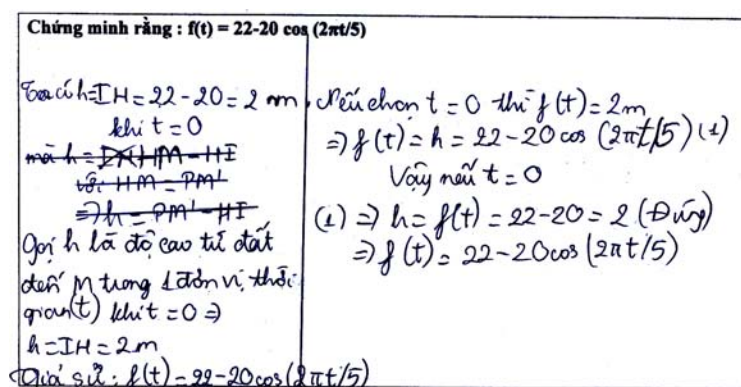 Chứng minh rằng : f(t) = 22-20 cos (2πt/5)
Ta có h=IH = 22-20 = 2 m
khi t = 0
mà h = HM - HI
với HM = PM'
=> h = PM' - HI
Gọi h là độ cao từ đất
đến M trong 1 đơn vị thời
gian(t) khi t = 0 =>
h = IH = 2m
Giả sử : f(t) = 22-20cos(2πt/5)
Nếu chọn t = 0 thì f(t) = 2m
=> f(t) = h = 22-20 cos (2πt/5) (1)
Vậy nếu t = 0
(1) => h = f(t) = 22-20 = 2 (Đúng)
=> f(t) = 22-20cos (2πt/5)